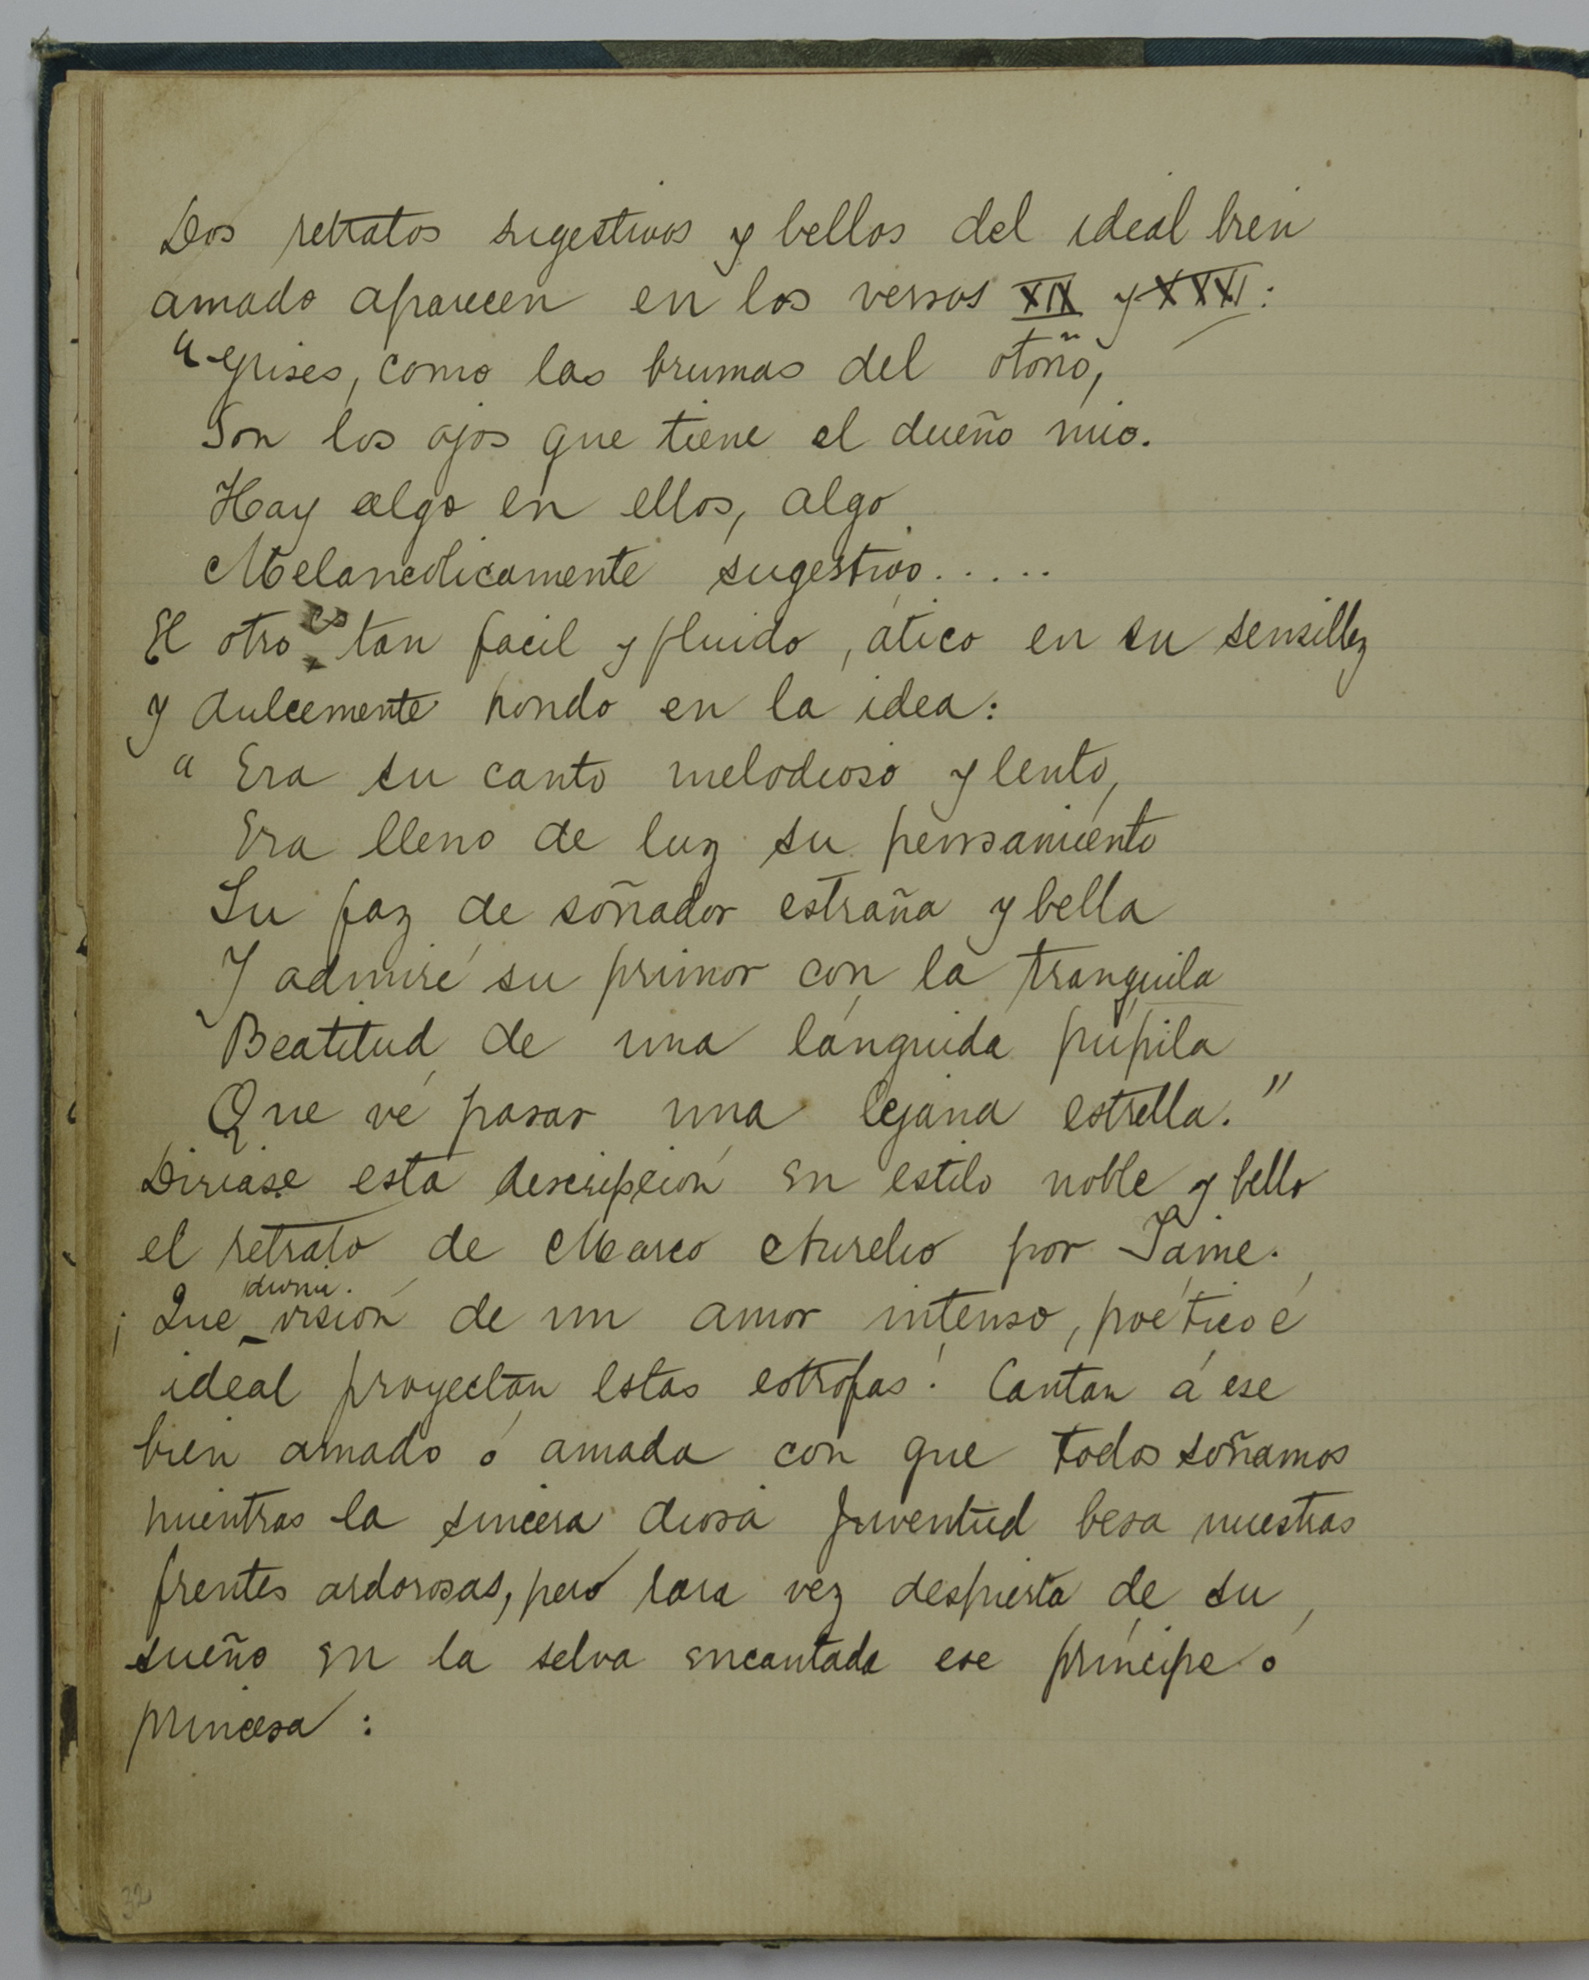 Dos retratos sugestivos y bellos del ideal bien
amado aparecen en los versos XIX y XXXI:
"Grises, como las brumas del otoño,
Son los ojos que tiene el dueño mio.
Hay algo en ellos, algo
Melancolicamente sugestivo.....
El otro es tan facil y fluido, ático en su sensillez
y dulcemente hondo en la idea:
" Era su canto melodioso y lento,
Era lleno de luz su pensamiento
Su faz de soñador estraña y bella
Y admiré su primor con la tranquila
Beatitud de una lánguida pupila
Que vé pasar una lejana estrella."
Diriase esta descripción en estilo noble y bello
el retrato de Marco Aurelio por Taine.
divina.
¡ Que visión de un amor intenso, poético é
ideal proyectan estas estrofas! Cantan á ese
bien amado ó amada con que todos soñamos
mientras la sincera diosa Juventud besa nuestras
frentes ardorosas, pero rara vez despierta de su
sueño en la selva encantada ese príncipe ó
princesa :
32